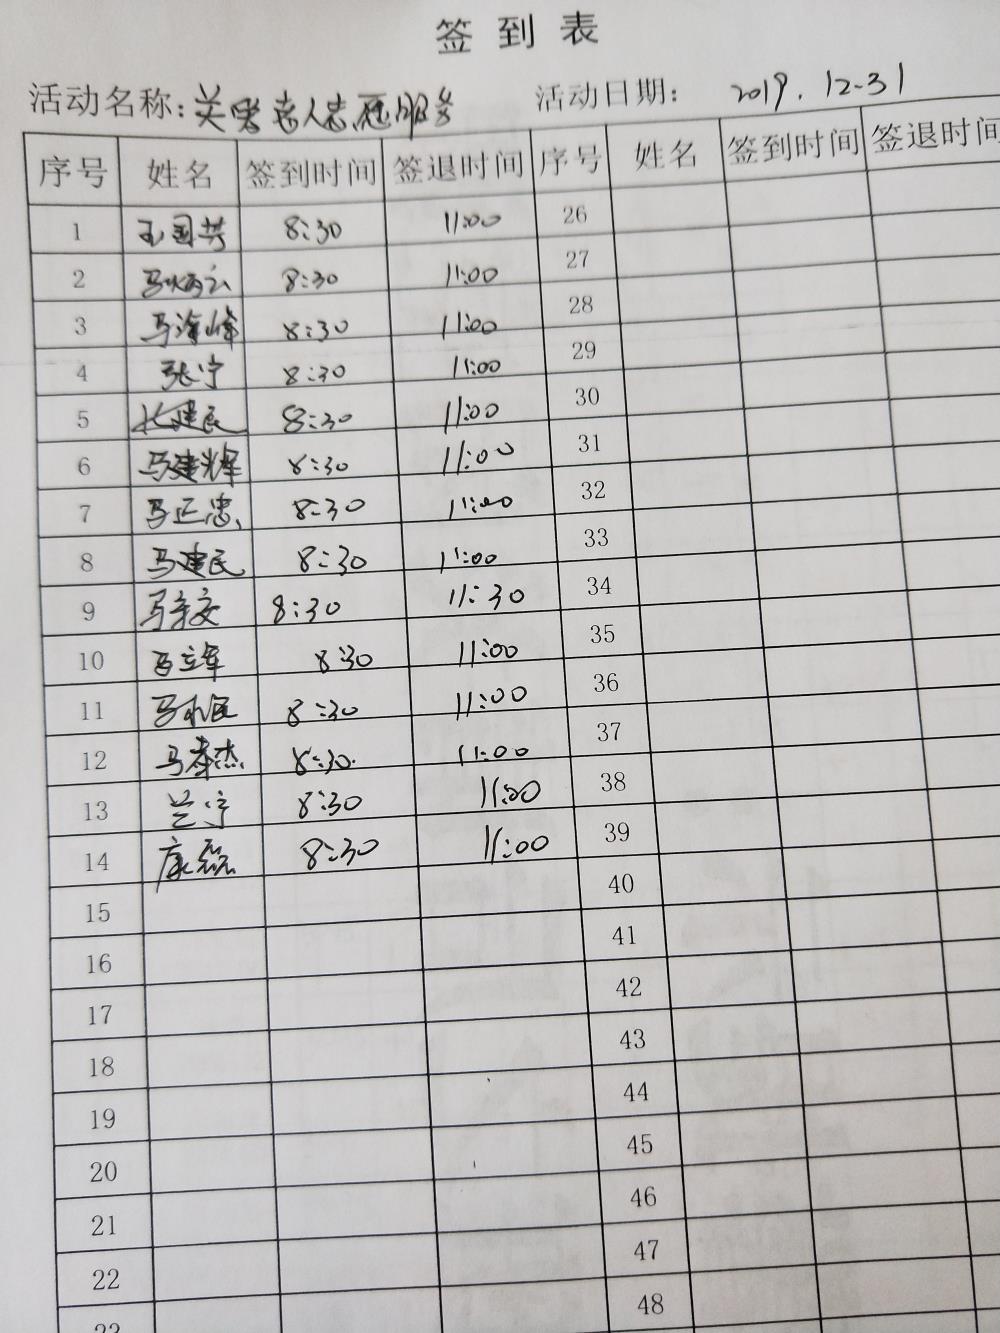 签到表
活动名称: 关爱老人志愿服务 活动日期: 2019.12.31
序号 姓名 签到时间 签退时间 序号 姓名 签到时间 签退时间
1 王国共 8:30 11:00 26
2 马炳云 8:30 11:00 27
3 马海峰 8:30 11:00 28
4 张宁 8:30 11:00 29
5 张建民 8:30 11:00 30
6 马建辉 8:30 11:00 31
7 马正忠 8:30 11:00 32
8 马建民 8:30 11:00 33
9 8:30 11:30 34
10 马立军 8:30 11:00 35
11 马利民 8:30 11:00 36
12 马春杰 8:30 11:00 37
13 兰宁 8:30 11:00 38
14 康磊 8:30 11:00 39
15 40
16 41
17 42
18 43
19 44
20 45
21 46
22 47
23 48